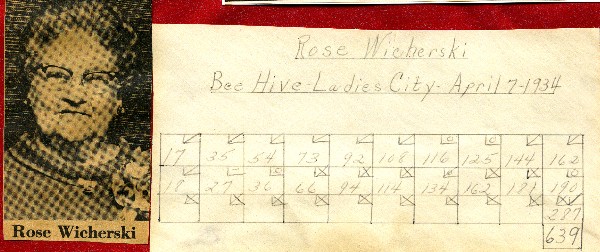 Rose Wicherski
Bee Hive-Ladies City-April 7-1934
17 35 54 73 92 108 116 125 144 162
18 27 36 66 94 114 134 162 181 190
287
639
Rose Wicherski